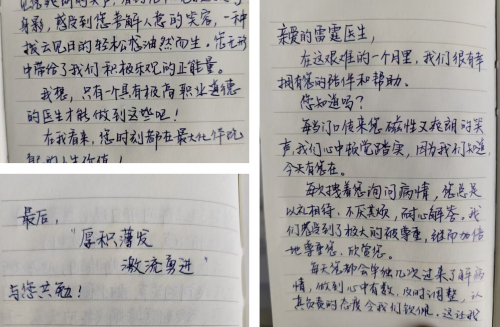 亲爱的雷霆医生,
在这艰难的一个月里,我们很有幸
拥有您的陪伴和帮助。
您知道吗?
每当门口传来您磁性又爽朗的笑
声,我们心中顿觉踏实,因为我们知道,
今天有您在。
每次拽着您询问病情,您总是
以礼相待,不厌其烦,耐心解答,我
们感受到了极大的被尊重,继而加倍
地尊重您、欣赏您。
每天您都会单独几次过来了解病
情,做到心中有数,及时调整,认
真负责的态度令我们钦佩。这让我
身影,感受到您善解人意的笑容,一种
拨云见日的轻松感油然而生,您无形
中带给了我们积极乐观的正能量。
我想,只有一个具有极高职业道德
的医生才能做到这些吧!
在我看来,您时刻都在最大化体现
人生价值!
最后,
“厚积薄发
激流勇进”
与您共勉!